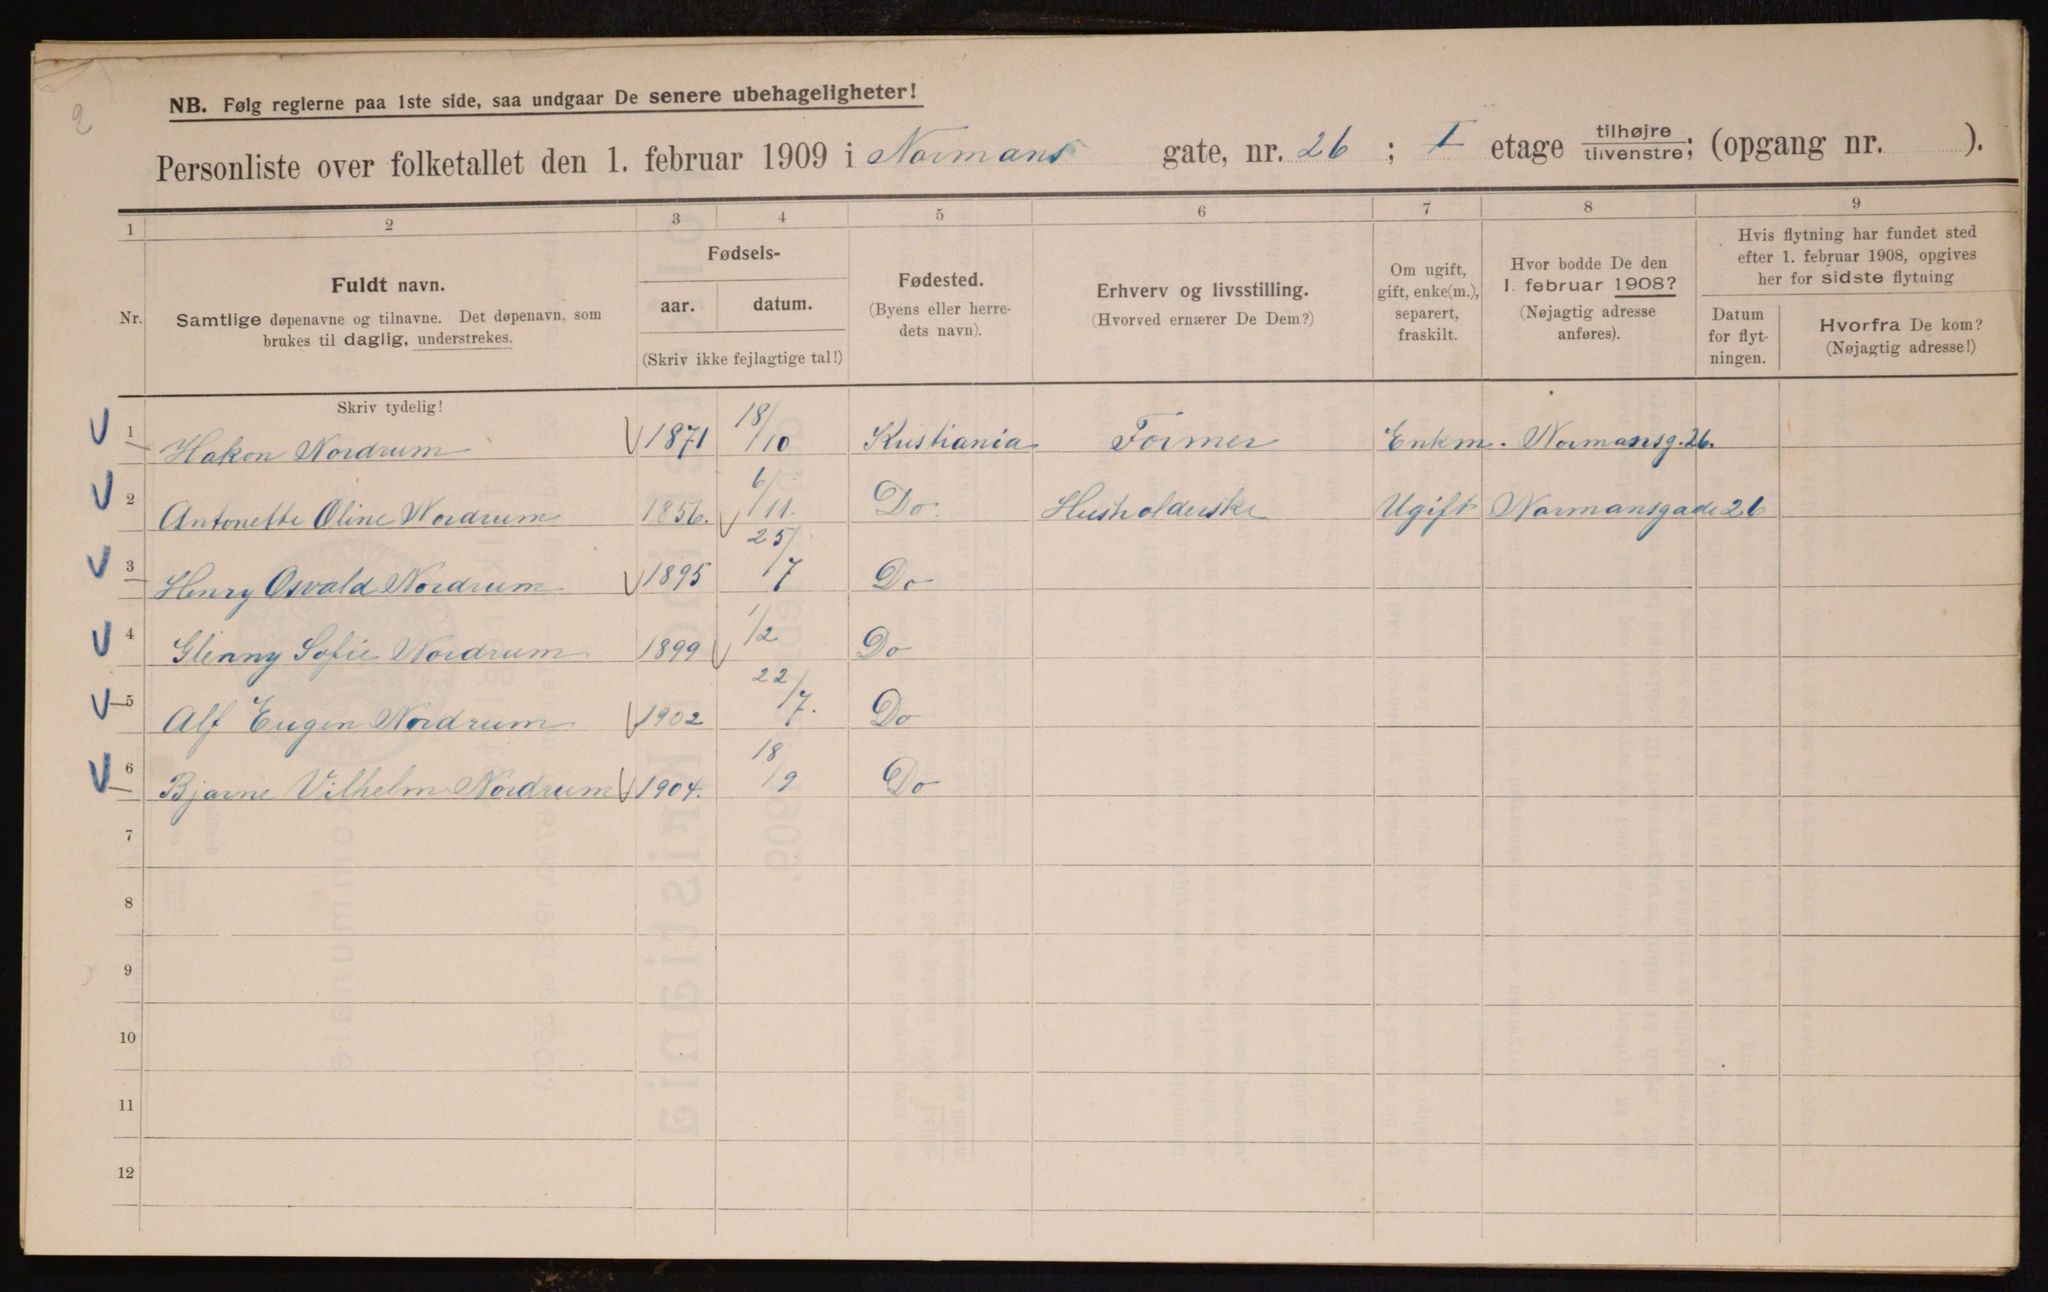 2
NB. Følg reglerne paa 1ste side, saa undgaar De senere ubehageligheter!
Personliste over folketallet den 1. februar 1909 i Normans gate, nr. 26 ; I etage tilhøjre tilvenstre; (opgang nr. ).
1 2 3 4 5 6 7 8 9
Nr.
Fuldt navn.
Samtlige døpenavne og tilnavne. Det døpenavn, som
brukes til daglig, understrekes.
Skriv tydelig!
Fødsels-
aar. datum.
(Skriv ikke fejlagtige tal!)
Fødested.
(Byens eller herre-
dets navn).
Erhverv og livsstilling.
(Hvorved ernærer De Dem?)
Om ugift,
gift, enke(m.),
separert,
fraskilt.
Hvor bodde De den
1. februar 1908?
(Nøjagtig adresse
anføres).
Hvis flytning har fundet sted
efter 1. februar 1908, opgives
her for sidste flytning
Datum
for flyt-
ningen.
Hvorfra De kom?
(Nøjagtig adresse!)
1 Hakon Nordrum 1871 18/10 Kristiania Former Enkm. Normansg. 26.
2 Antonette Oline Nordrum 1856. 6/11. Do. Husholderske Ugift Normansgade 26
3 Henry Osvald Nordrum 1895 25/7 Do
4 Glenny Sofie Nordrum 1899 1/2 Do
5 Alf Eugen Nordrum 1902 22/7. Do
6 Bjarne Vilhelm Nordrum 1904. 18/9 Do
7
8
9
10
11
12